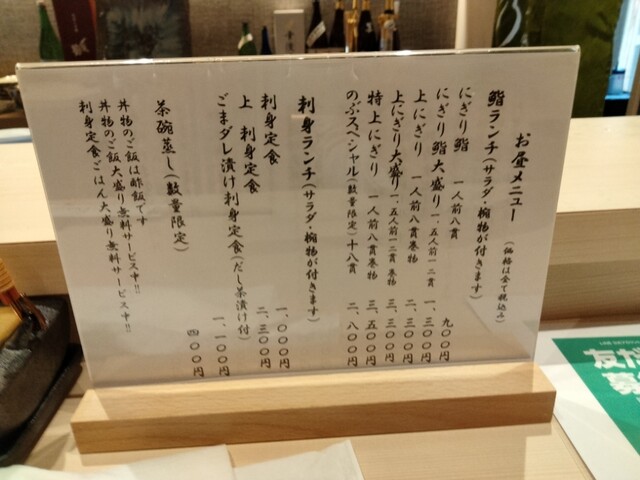 お昼メニュー (価格は全て税込み)
鮨ランチ(サラダ・椀物が付きます)
にぎり鮨 一人前八貫 九〇〇円
にぎり鮨大盛り 一、五人前一二貫 一、三〇〇円
上にぎり 一人前八貫巻物 二、三〇〇円
上にぎり大盛り 一、五人前一二貫 巻物 三、三〇〇円
特上にぎり 一人前八貫巻物 三、五〇〇円
のぶスペシャル(数量限定)十八貫 二、八〇〇円
刺身ランチ(サラダ・椀物が付きます)
刺身定食 一、〇〇〇円
上 刺身定食 二、三〇〇円
ごまダレ漬け刺身定食(だし茶漬け付) 一、一〇〇円
茶碗蒸し(数量限定) 四〇〇円
丼物のご飯は酢飯です
丼物のご飯大盛り無料サービス中!!
刺身定食ごはん大盛り無料サービス中!!
友だ
募